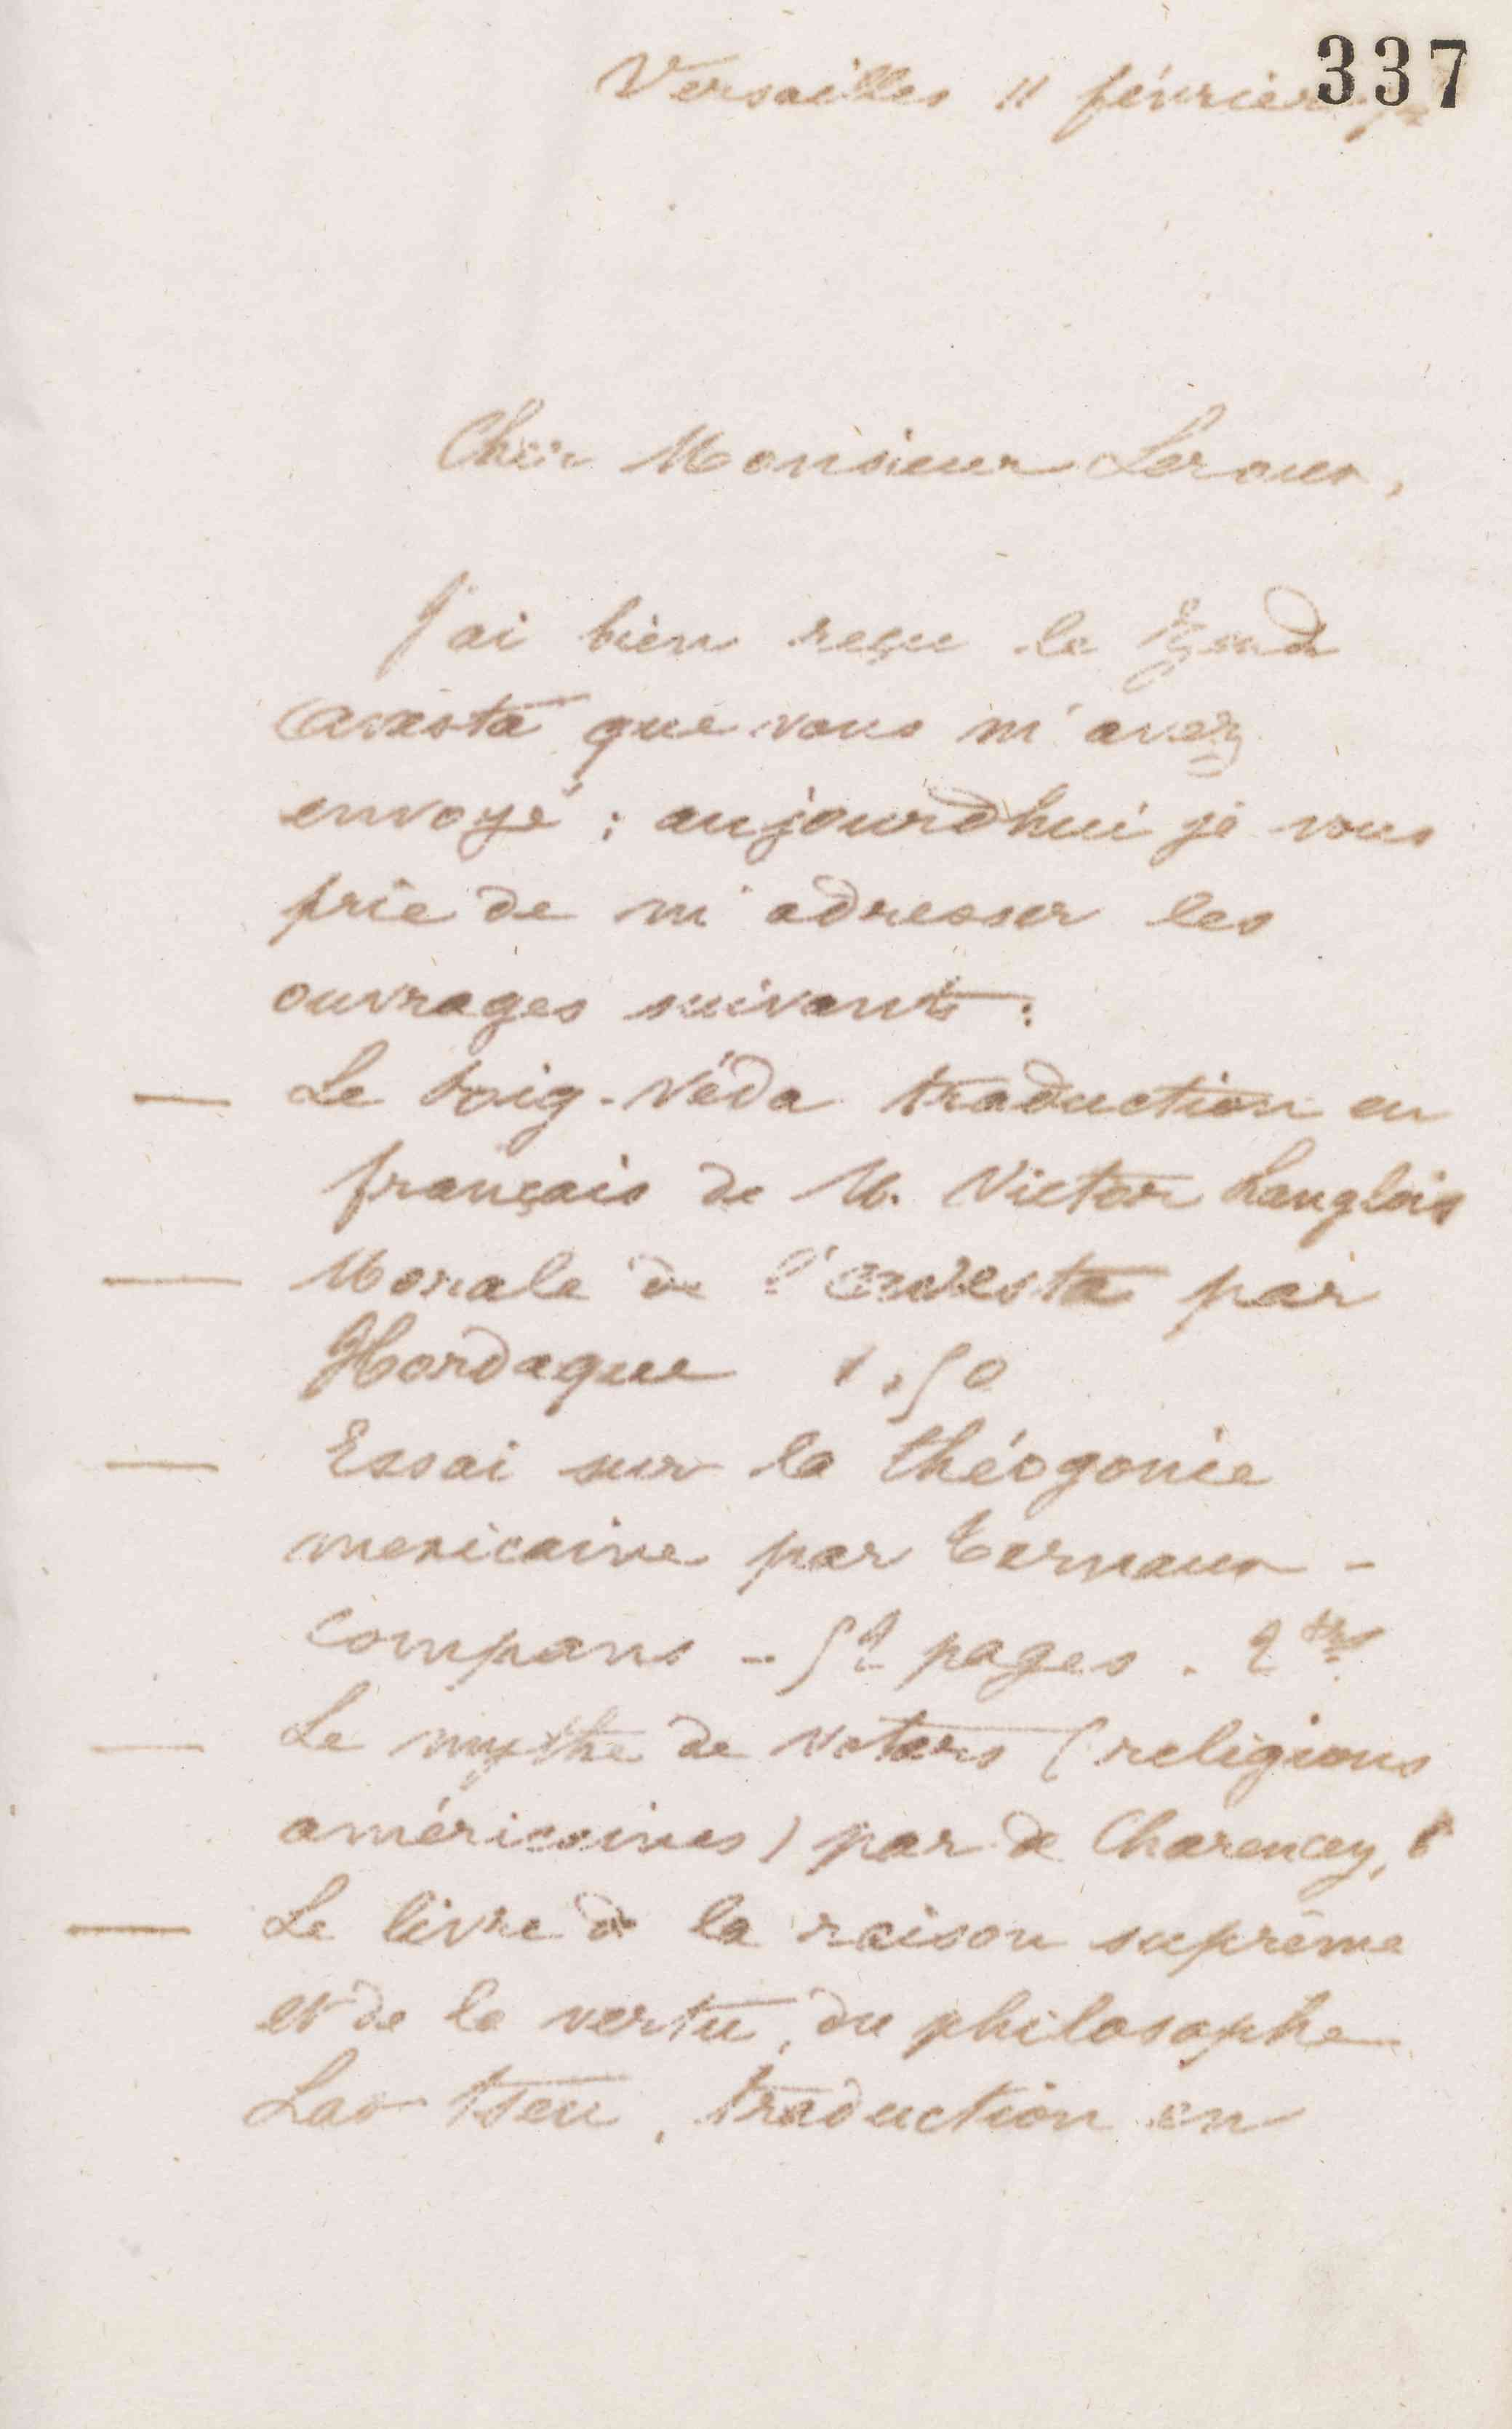 337
Versailles 11 février
Cher Monsieur Leroux,
J'ai bien reçu le Zend
avesta que vous m'avez
envoyé ; aujourdhui je vous
prie de m'adresser les
ouvrages suivants :
— Le Rig-Véda traduction en
français de M. Victor Langlois
— Morale de l'avesta par
Hovelaque 1,50
— Essai sur la théogonie
mexicaine par Ternaux-
compans - 52 pages. 2 frs
— Le mythe de votan (religions
américaines) par de Charencey,
— Le livre de la raison suprême
et de la vertu, du philosophe
Lao Tseu, traduction en